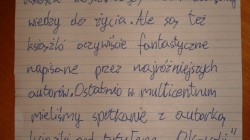 wiedzy do życia. Ale są też
książki oczywiście fantastyczne
napisane przez najróżniejszych
autorów. Ostatnio w multicentrum
mieliśmy spotkanie z autorką